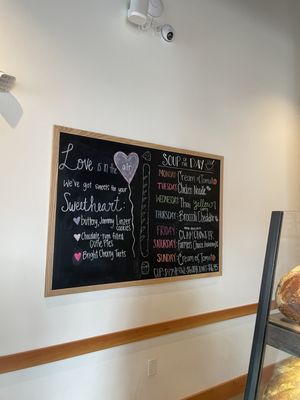 Love is in the air
We've got sweets for your
Sweetheart:
buttery Jammy Linzer
cookies
Chocolate-rum Filled
Cutie Pies
Bright Cherry Tarts
SOUP OF THE DAY
MONDAY: Cream of Tomato
TUESDAY: Chicken Noodle
WEDNESDAY: Thai Yellow
THURSDAY: Broccoli Cheddar
FRIDAY: CLAM CHOWDER
SATURDAY: Farmers Choice
SUNDAY: Cream of Tomato
CUP